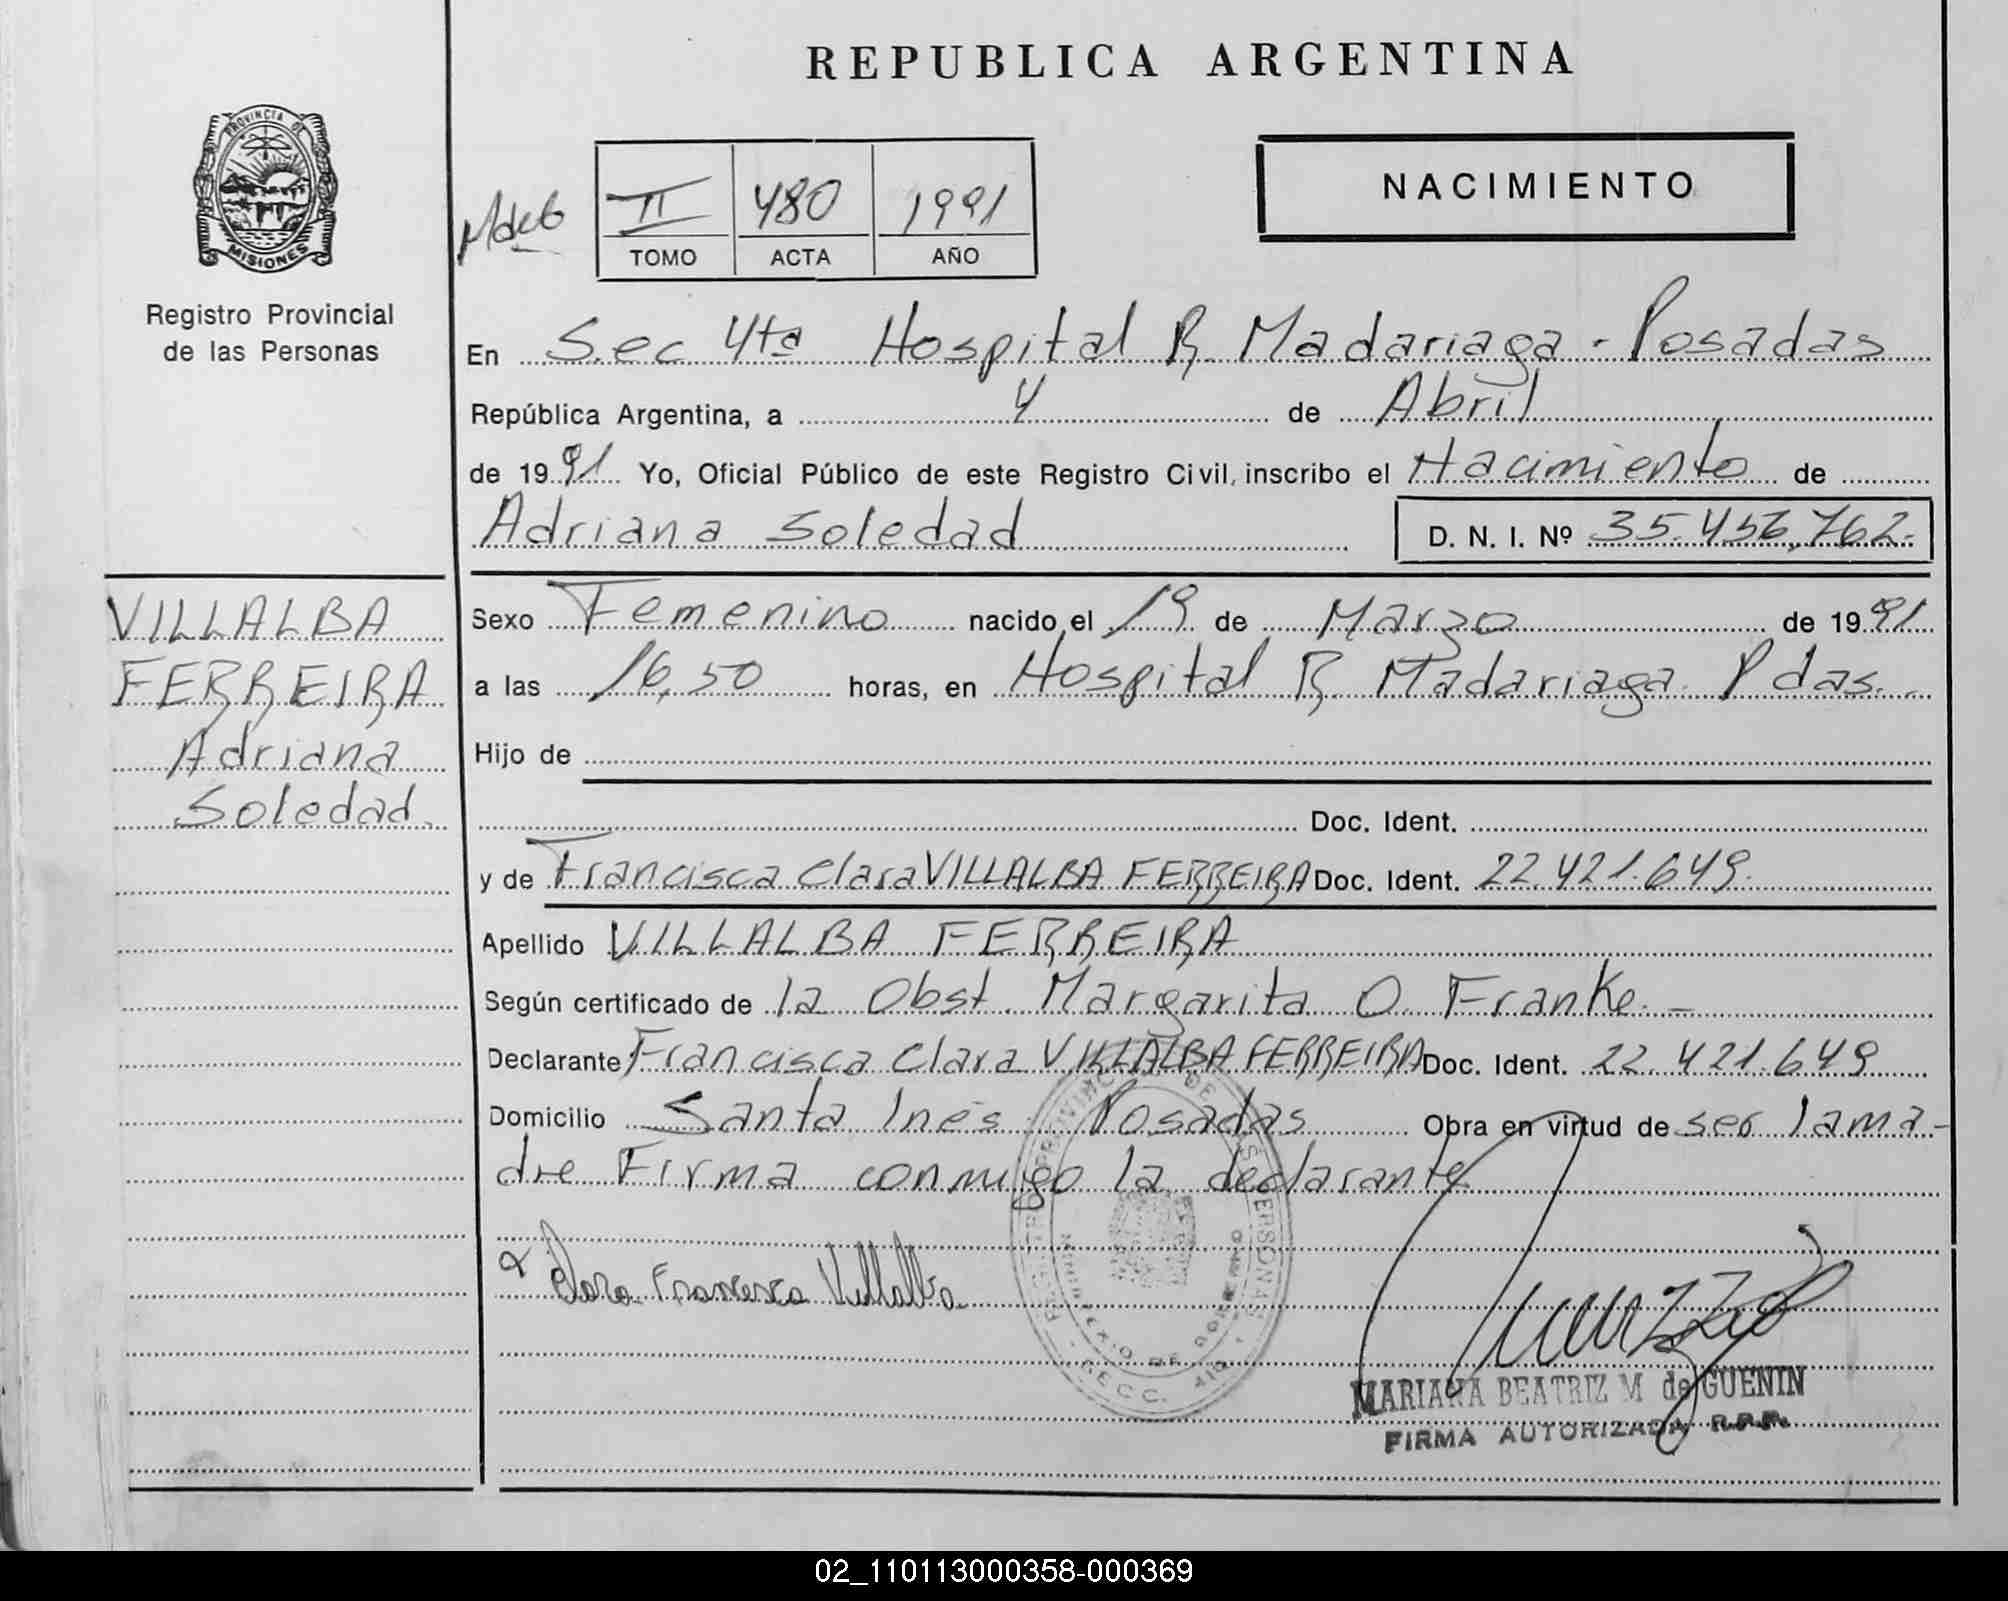 REPUBLICA ARGENTINA
PROVINCIA DE
MISIONES
Registro Provincial
de las Personas
II 480 1991
TOMO ACTA AÑO
NACIMIENTO
En Sec 4ta Hospital R. Madariaga - Posadas
República Argentina, a 4 de Abril
de 1991 Yo, Oficial Público de este Registro Civil, inscribo el Nacimiento de
Adriana Soledad D. N. I. Nº 35.456.762.
VILLALBA
FERREIRA
Adriana
Soledad.
Sexo Femenino nacido el 19 de Marzo de 1991
a las 16,50 horas, en Hospital R. Madariaga Pdas.
Hijo de
Doc. Ident.
y de Francisca Clara VILLALBA FERREIRA Doc. Ident. 22.421.649.
Apellido VILLALBA FERREIRA
Según certificado de la Obst. Margarita O. Franke. -
Declarante Francisca Clara VILLALBA FERREIRA Doc. Ident. 22.421.649
Domicilio Santa Inés Posadas Obra en virtud de ser la ma-
dre Firma conmigo la declarante
Clara Francisca Villalba
MARIANA BEATRIZ M de GUENIN
FIRMA AUTORIZADA R.P.P.
02_110113000358-000369